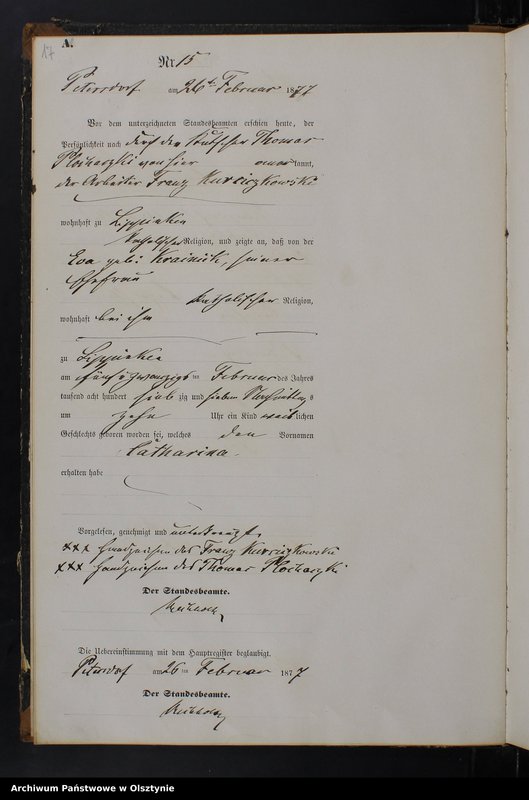 17
A.
Nr 15
Petersdorf am 26ten Februar 1877
Vor dem unterzeichneten Standesbeamten erschien heute, der
Persönlichkeit nach durch den Kutscher Thomas
von hier kannt,
der Arbeiter Franz Kurzizkowski
wohnhaft zu Lippinken
katholischer Religion, und zeigte an, daß von der
Eva geb: Krainik, seiner
Ehefrau
katholischer Religion,
wohnhaft bei ihm
zu Lippinken
am fünf u zwanzigsten Februar des Jahres
tausend acht hundert siebzig und sieben Vormittags
um zehn Uhr ein Kind weiblichen
Geschlechts geboren worden sei, welches den Vornamen
Catharina
erhalten habe
Vorgelesen, genehmigt und unterkreuzt
xxx Handzeichen des Franz Kurzizkowski
xxx Handzeichen des Thomas
Der Standesbeamte.
Die Uebereinstimmung mit dem Hauptregister beglaubigt.
Petersdorf am 26ten Februar 1877
Der Standesbeamte.
Archiwum Państwowe w Olsztynie